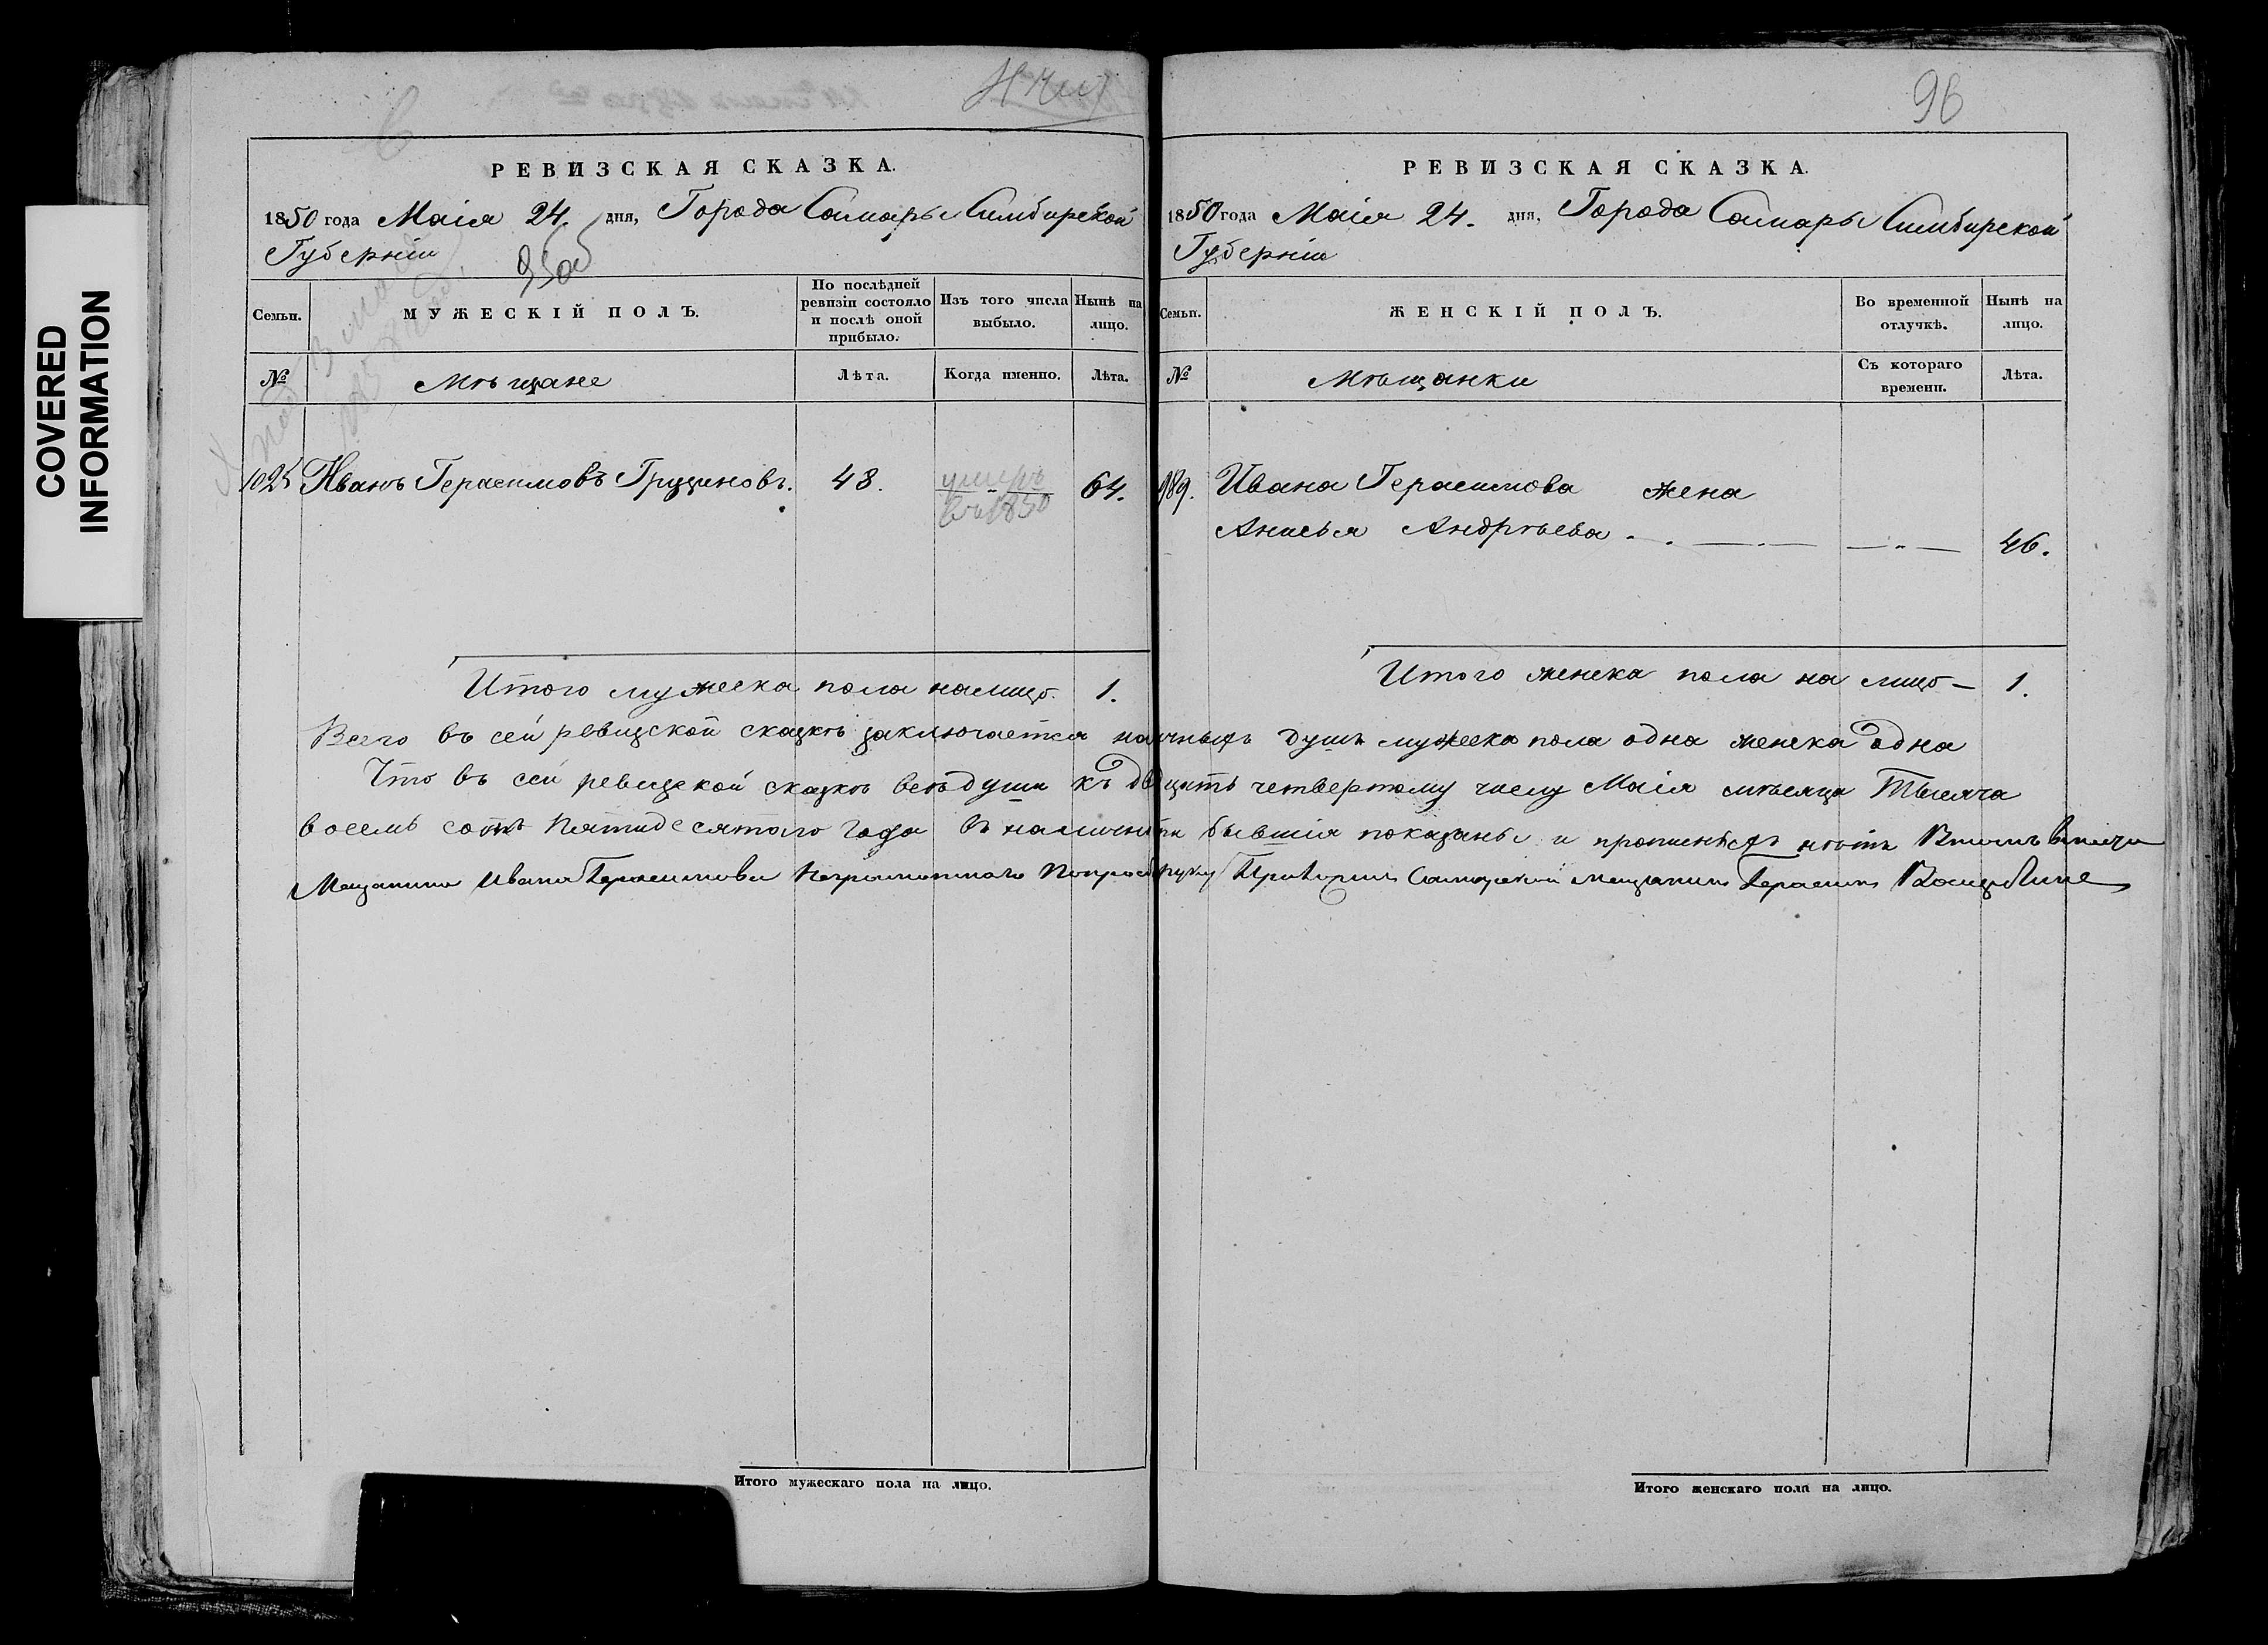 COVERED
INFORMATION
РЕВИЗСКАЯ СКАЗКА.
1850 года Маія 24. дня, Города Самары Симбирской
Губерніи
Семьи.
МУЖЕСКІЙ ПОЛЪ.
По послѣдней ревизіи состояло и послѣ оной прибыло.
Изъ того числа выбыло.
Нынѣ на лицо.
№
Мѣщане
Лѣта.
Когда именно.
Лѣта.
1025 Иванъ Герасимовъ Грузиновъ. 48. умеръ въ 1850 64.
Итого мужеска пола налицо. 1.
96
РЕВИЗСКАЯ СКАЗКА.
1850 года Маія 24. дня, Города Самары Симбирской
Губерніи
Семьи.
ЖЕНСКІЙ ПОЛЪ.
Во временной отлучкѣ.
Нынѣ на лицо.
№
Мѣщанки
Съ котораго времени.
Лѣта.
989. Ивана Герасимова жена
Анисья Андрѣева - - 46.
Итого женска пола на лицо - 1.
Всего въ сей ревизской сказкѣ заключается наличныхъ душъ мужеска пола одна женска одна
Что въ сей ревизской сказкѣ всѣ души къ двадцать четвертому числу Маія мѣсяца Тысяча
восемь сотъ Пятидесятаго года въ наличности бывшія показаны и прописныхъ нѣтъ
Мещанина Ивана Герасимова Неграмотнаго Самарской мещанинъ Герасимъ
Итого мужескаго пола на лицо.
Итого женскаго пола на лицо.